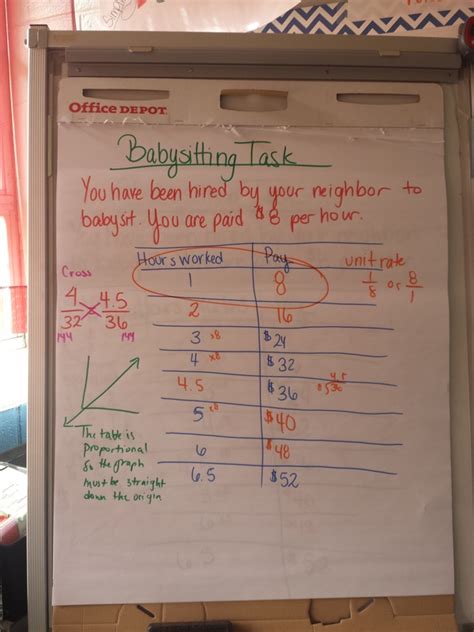 Office DEPOT
Babysitting Task
You have been hired by your neighbor to
babysit. You are paid $8 per hour.
Hours worked Pay
1 8
2 16
3 x8 $24
4 x8 $32
4.5 $36
5 x8 $40
6 $48
6.5 $52
unit rate
1/8 or 8/1
4.5
8√36
Cross
4/32 4.5/36
144 144
The table is
proportional
so the graph
must be straight
down the origin